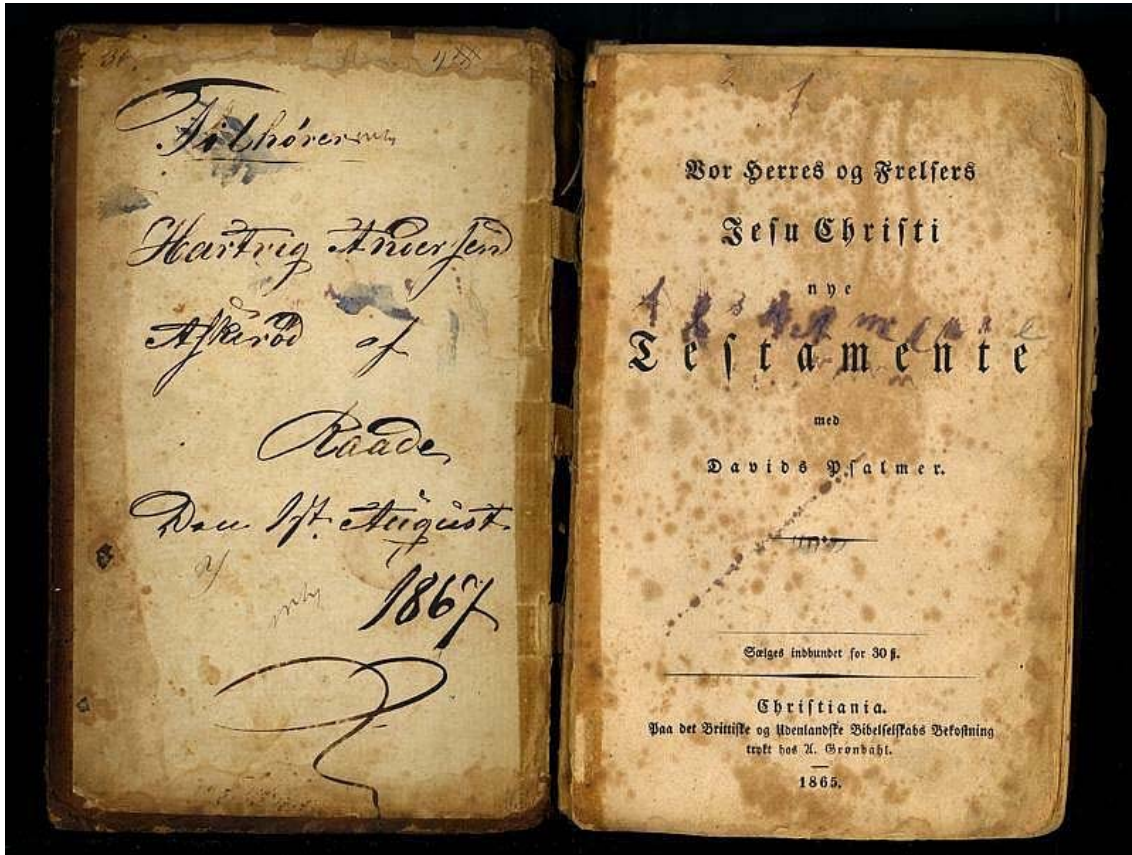 Tilhører
Hartvig Andersen
Askerød af
Raade
Den 1st. August
1867
Vor Herres og Frelsers
Jesu Christi
nye
Testamente
med
Davids Psalmer.
Sælges indbundet for 30 ß.
Christiania.
Paa det Brittiske og Udenlandske Bibelselskabs Bekostning
trykt hos A. Grøndahl.
1865.